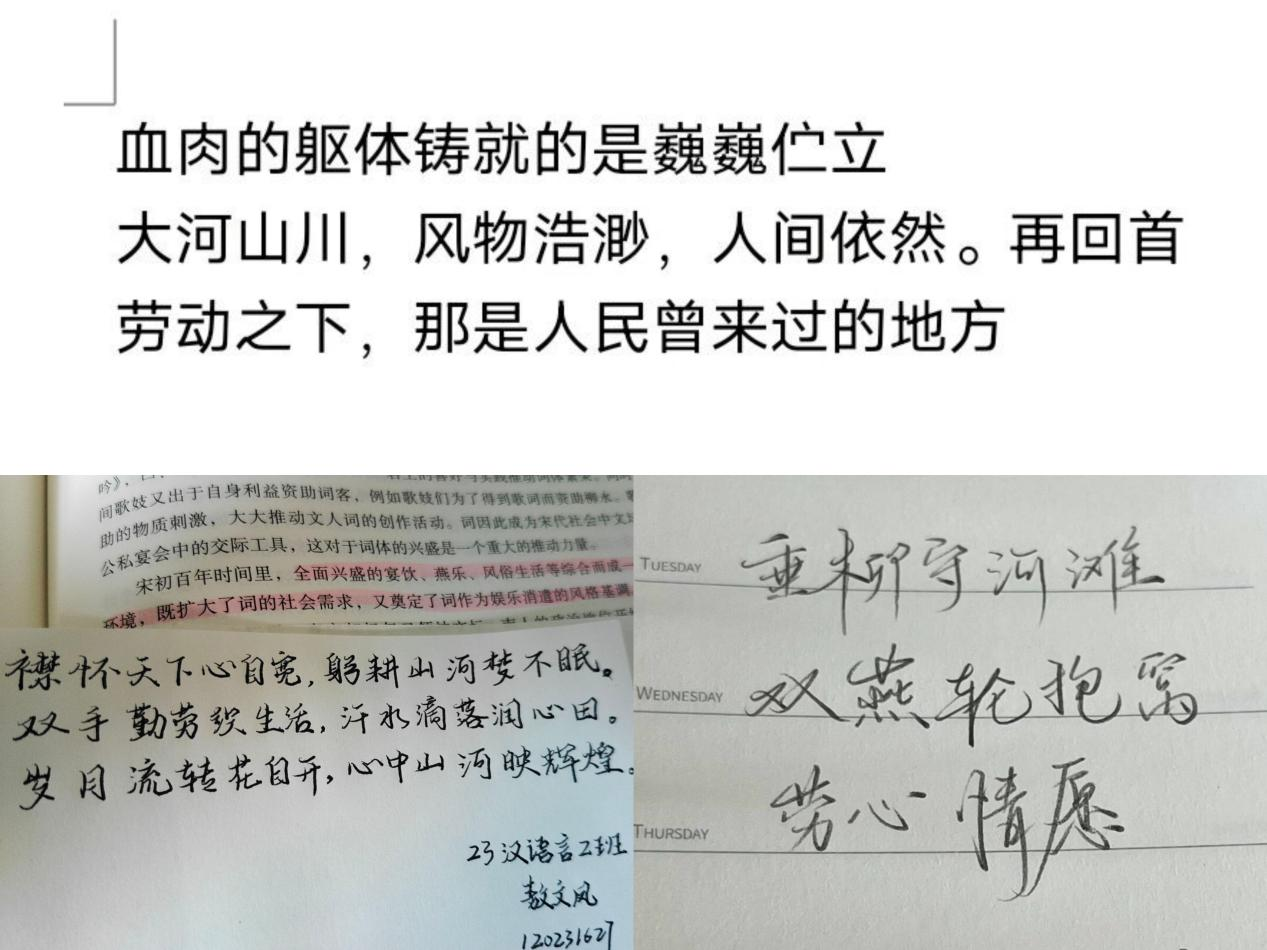 血肉的躯体铸就的是巍巍伫立
大河山川，风物浩渺，人间依然。再回首
劳动之下，那是人民曾来过的地方
吟》，
间歌妓又出于自身利益资助词客，例如歌妓们为了得到歌词而资助柳永。
助的物质刺激，大大推动文人词的创作活动。词因此成为宋代社会中文
公私宴会中的交际工具，这对于词体的兴盛是一个重大的推动力量。
宋初百年时间里，全面兴盛的宴饮、燕乐、风俗生活等综合而成一
环境，既扩大了词的社会需求，又奠定了词作为娱乐消遣的风格基调
襟怀天下心自宽，躬耕山河梦不眠。
双手勤劳织生活，汗水滴落润心田。
岁月流转花自开，心中山河映辉煌。
23汉语言2班
敖文凤
120231627
TUESDAY 垂柳守河滩
WEDNESDAY 双燕轮抱窝
THURSDAY 劳心情愿